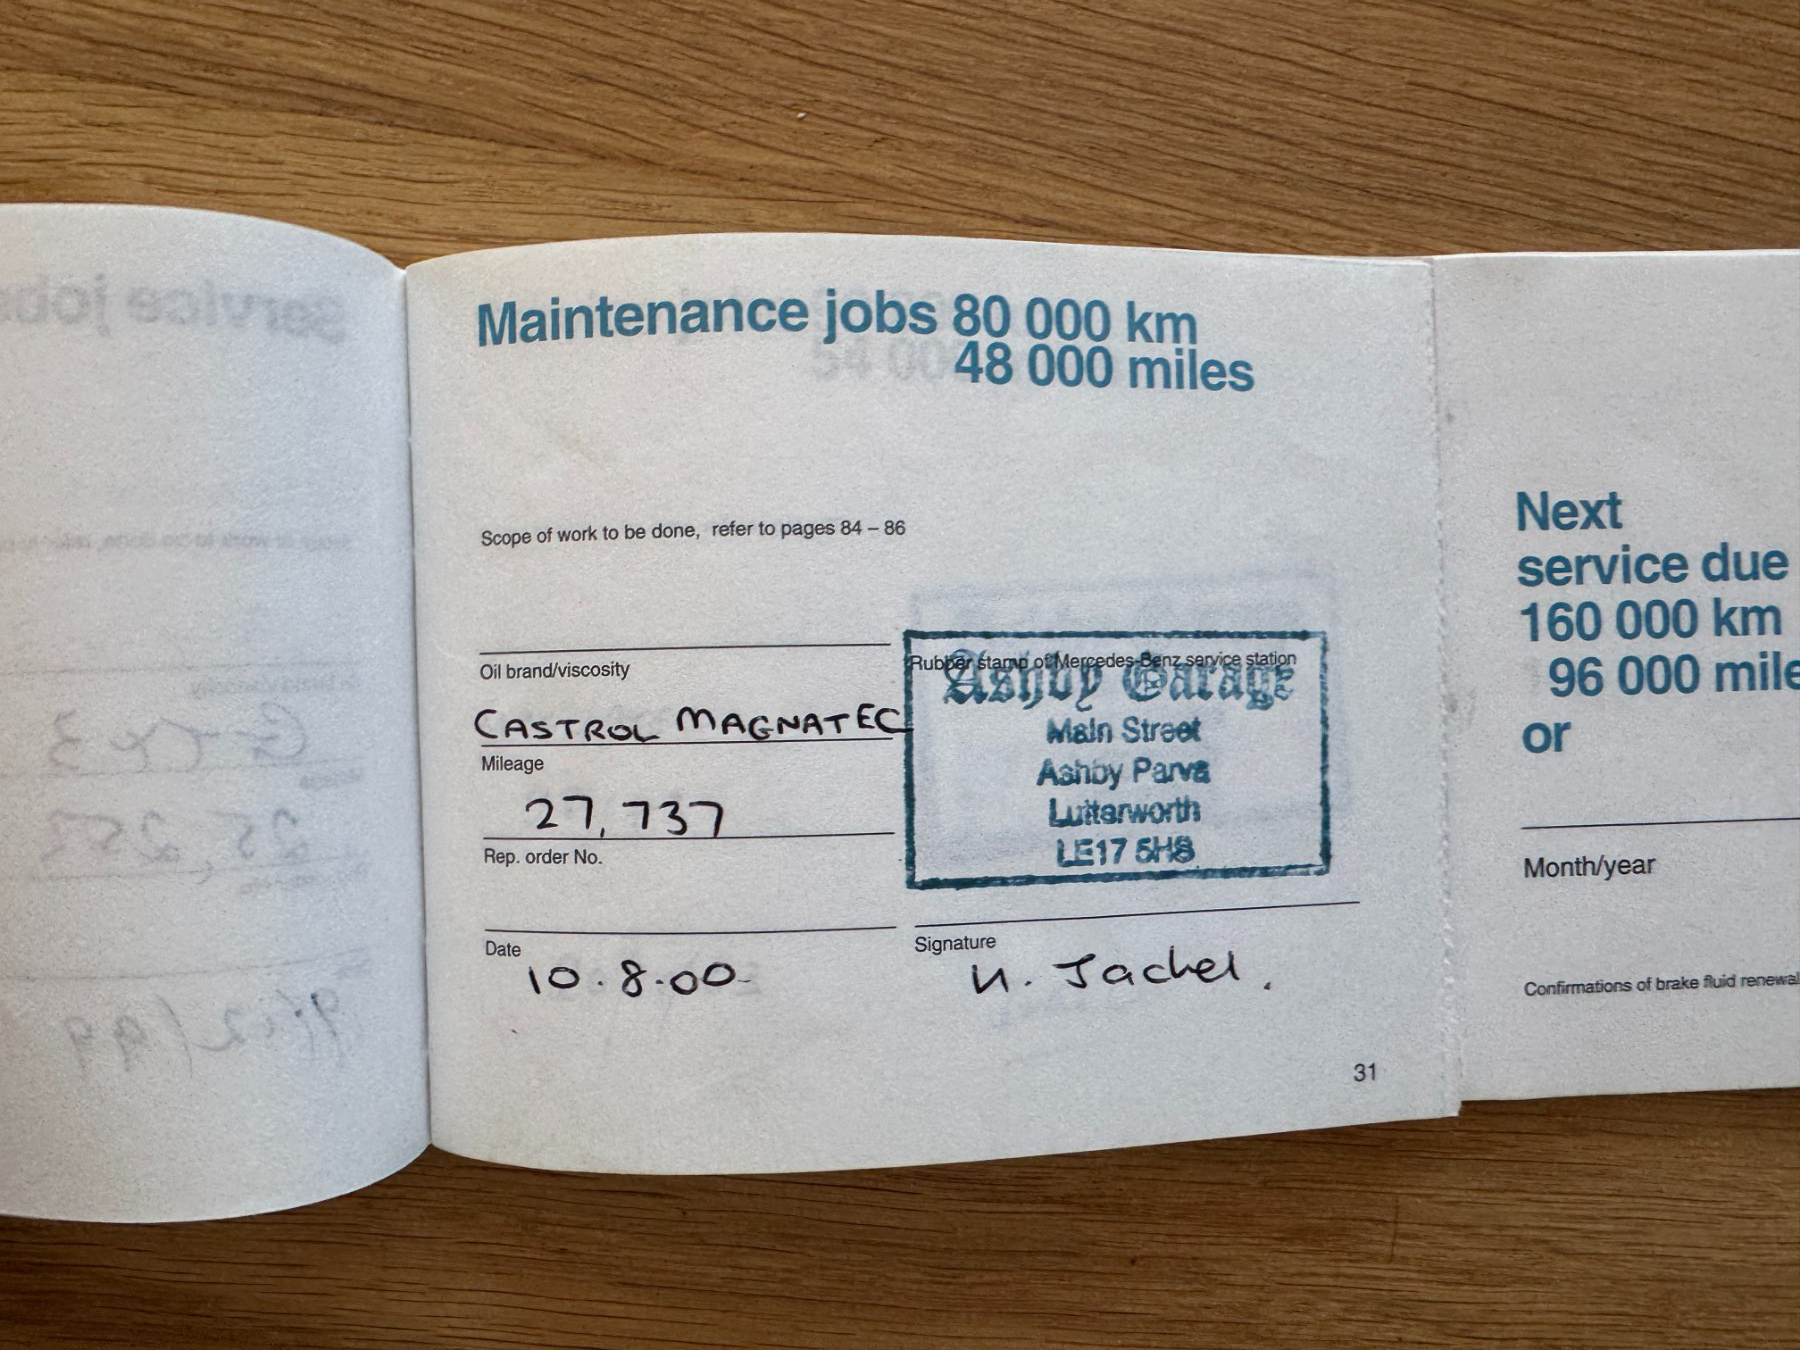 Maintenance jobs 80 000 km
48 000 miles
Scope of work to be done, refer to pages 84 – 86
Oil brand/viscosity
CASTROL MAGNATEC
Mileage
27,737
Rep. order No.
Date
10.8.00
Rubber stamp of Mercedes-Benz service station
Ashby Garage
Main Street
Ashby Parva
Lutterworth
LE17 5HS
Signature
N. Jackel.
31
Next
service due
160 000 km
96 000 mile
or
Month/year
Confirmations of brake fluid renewal